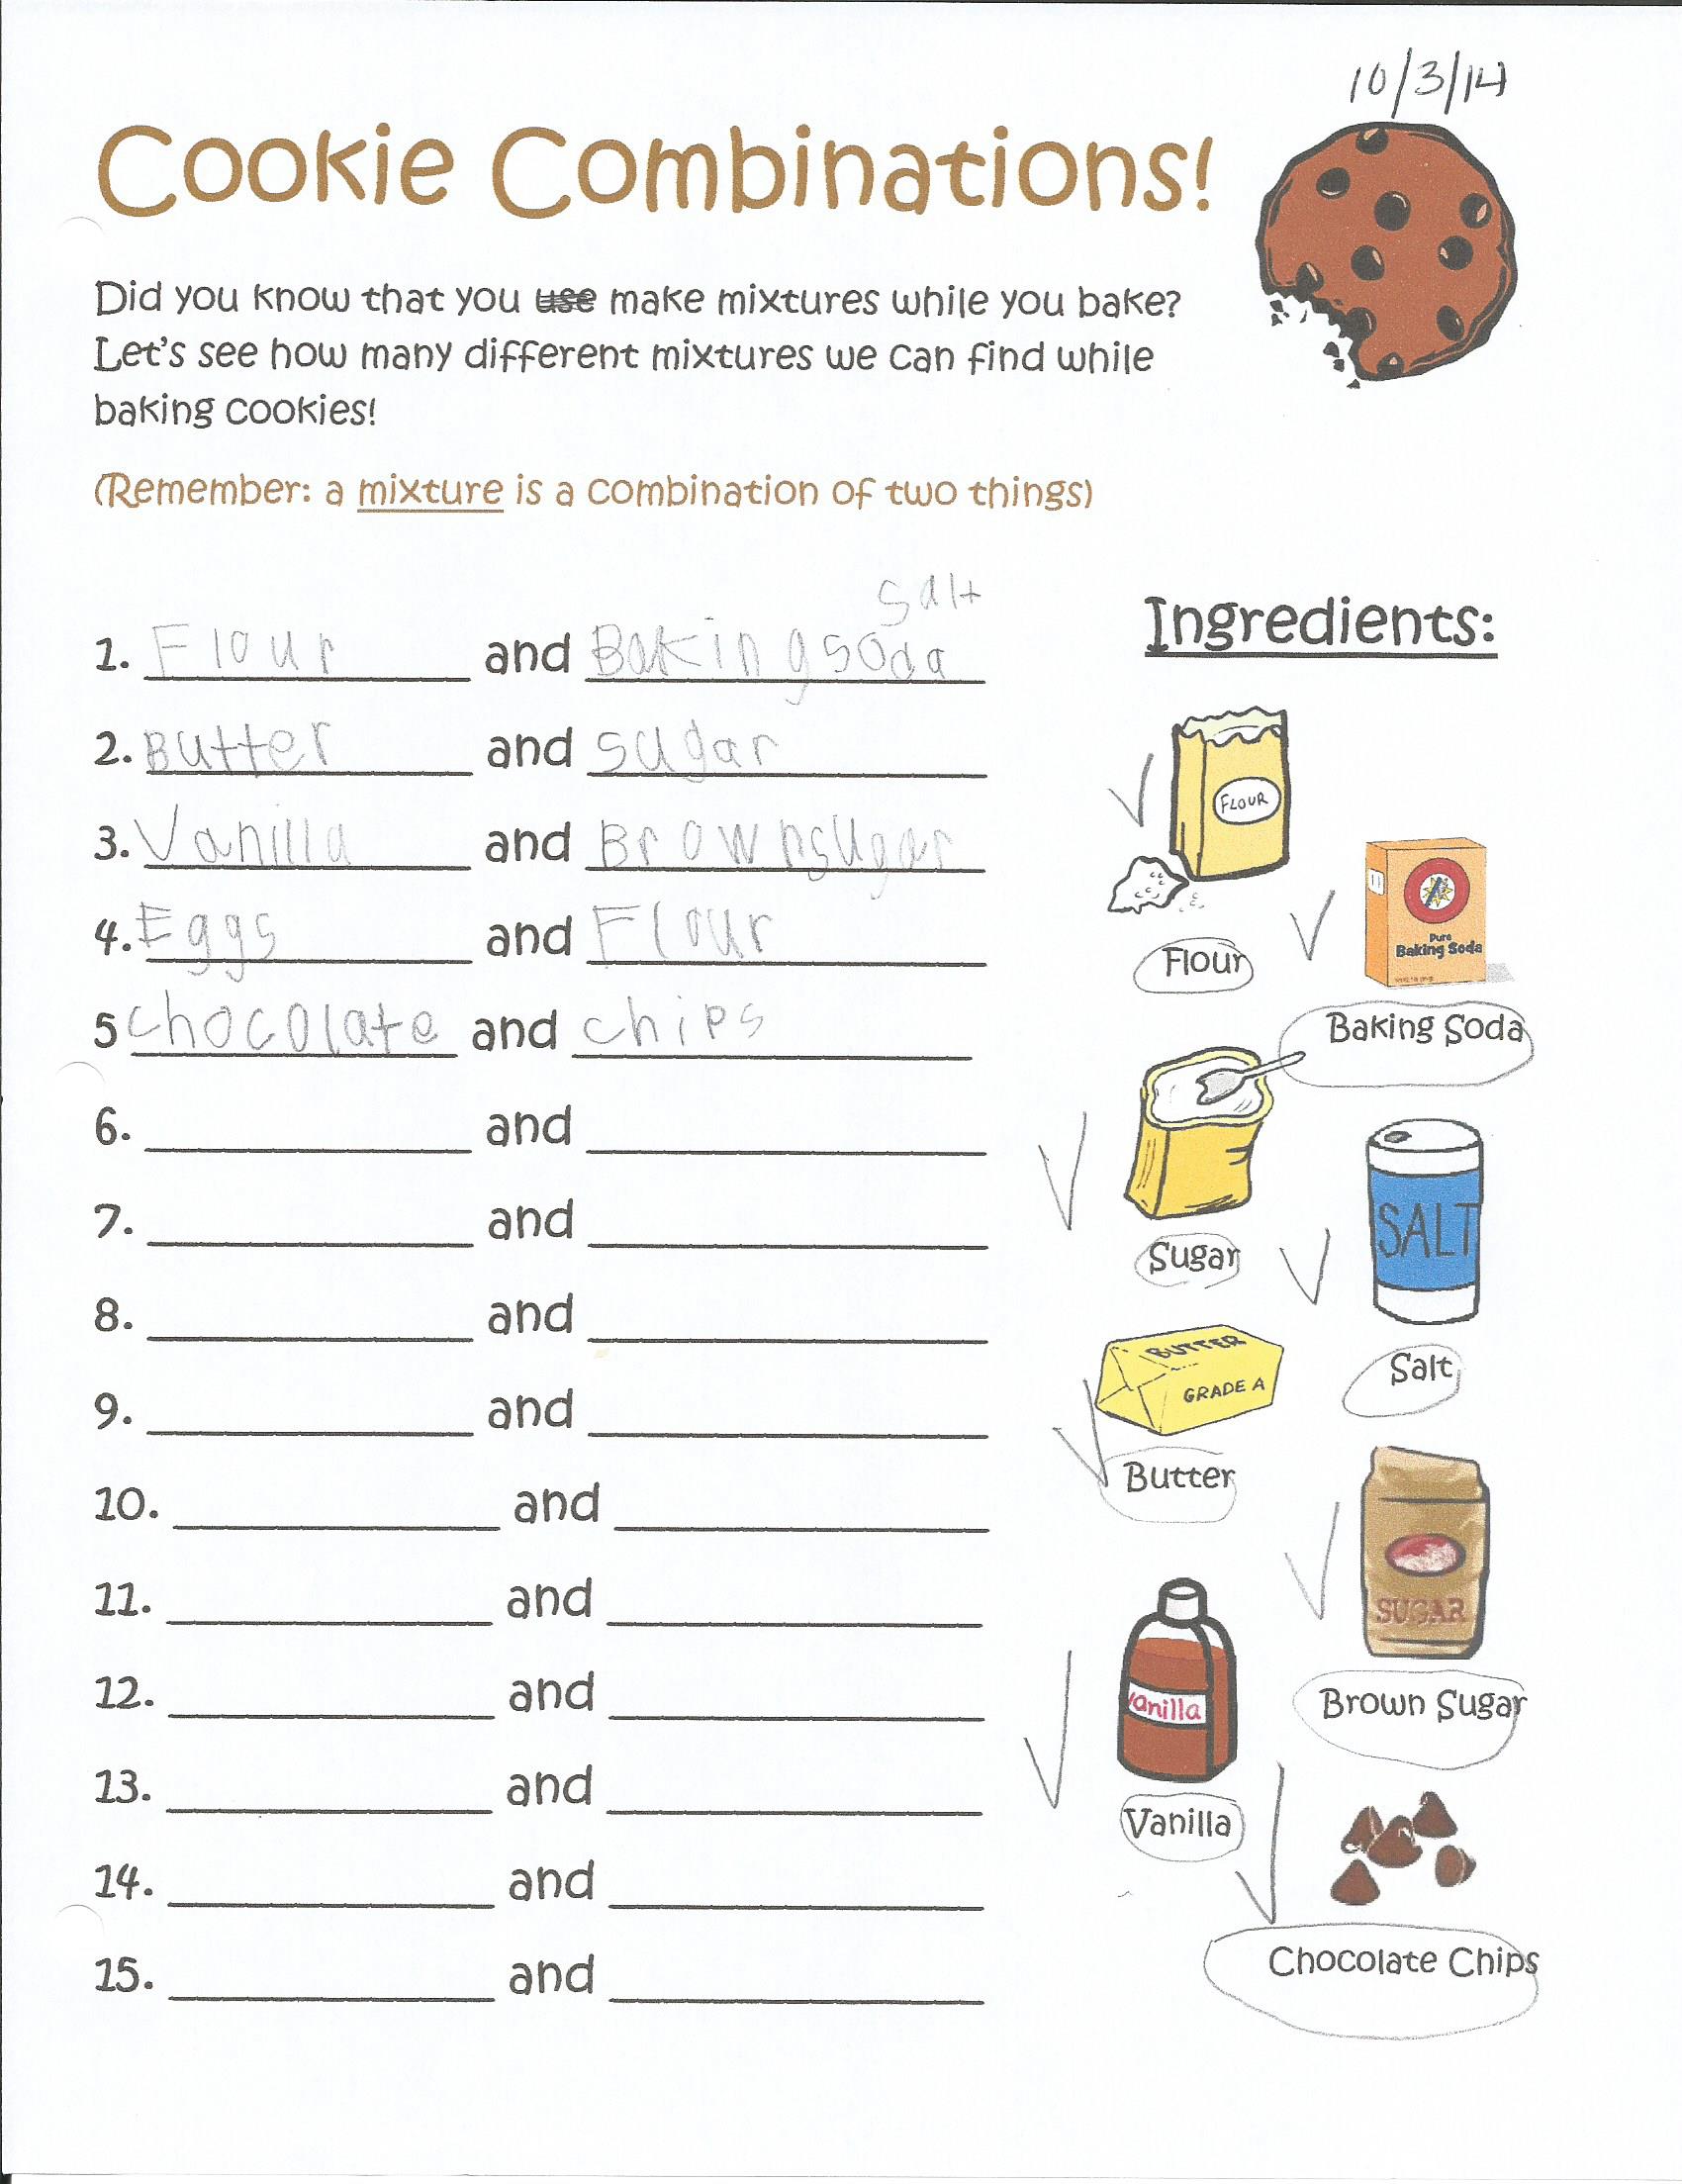 10/3/14
Cookie Combinations!
Did you know that you use make mixtures while you bake?
Let's see how many different mixtures we can find while
baking cookies!
(Remember: a mixture is a combination of two things)
salt
1. Flour and Baking soda
2. Butter and sugar
3. Vanilla and Brown sugar
4. Eggs and Flour
5 chocolate and chips
6. and
7. and
8. and
9. and
10. and
11. and
12. and
13. and
14. and
15. and
Ingredients:
FLOUR
Flour
Pure
Baking Soda
Baking Soda
Sugar
SALT
Salt
BUTTER
GRADE A
Butter
SUGAR
Brown Sugar
Vanilla
Vanilla
Chocolate Chips